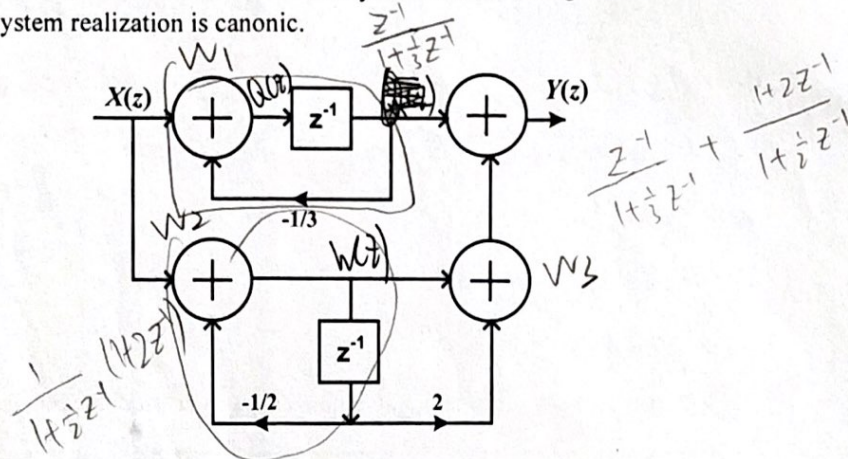 ystem realization is canonic.
z⁻¹
1+⅓z⁻¹
W1
X(z)
Q(z)
z⁻¹
Y(z)
z⁻¹/(1+⅓z⁻¹) + (1+2z⁻¹)/(1+½z⁻¹)
-1/3
W2
W(z)
W3
z⁻¹
1/(1+½z⁻¹) (1+2z⁻¹)
-1/2
2